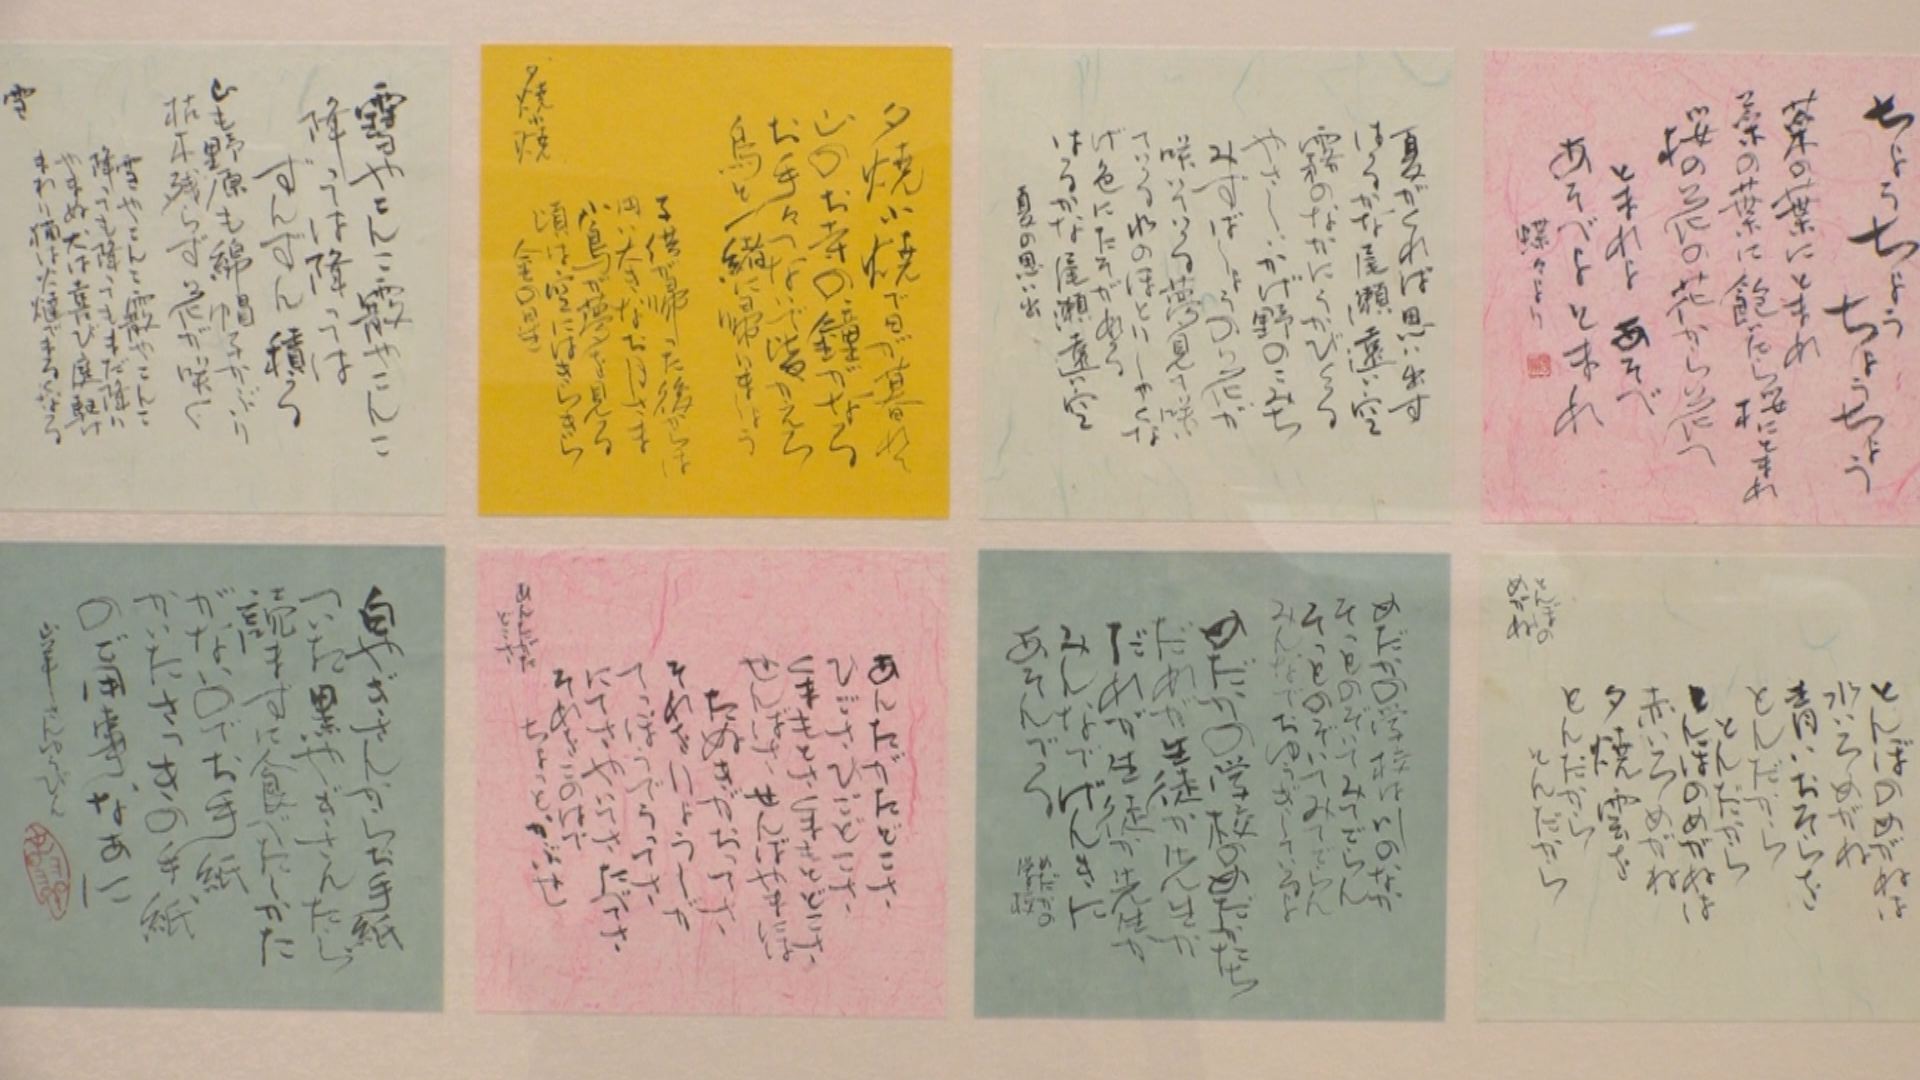 ちょうちょう
ちょうちょう
菜の葉にとまれ
菜の葉に飽いたら桜にとまれ
桜の花の花から花へ
とまれよ あそべ
あそべよとまれ
蝶々より
夏がくれば思い出す
はるかな尾瀬遠い空
霧のなかにうかびくる
やさしいかげ野のこみち
みずばしょうの花が
咲いている夢見て咲い
ている水のほとりしゃくな
げ色にたそがれる
はるかな尾瀬遠い空
夏の思い出
夕焼小焼で日が暮れ
山のお寺の鐘がなる
お手々つないで皆かえろ
烏と一緒に帰りましょう
子供が帰った後からは
円い大きなお月さま
小鳥が夢を見る
頃は空にはきらきら
金の星
夕焼小焼
雪やこんこ霰やこんこ
降っては降っては
ずんずん積る
山も野原も綿帽子かぶり
枯木残らず花が咲く
雪やこんこ霰やこんこ
降っても降ってもまだ降り
やまぬ犬は喜び庭駈け
まわり猫は火燵でまるくなる
雪
とんぼのめがねは
水いろめがね
青いおそらを
とんだから
とんだから
とんぼのめがねは
赤いろめがね
夕焼雲を
とんだから
とんだから
とんぼの
めがね
めだかの学校は川のなか
そっとのぞいてみてごらん
そっとのぞいてみてごらん
みんなでおゆうぎしているよ
めだかの学校のめだかたち
だれが生徒か先生か
だれが生徒か先生か
みんなでげんきに
あそんでる
めだかの
学校
あんたがたどこさ
ひごさ、ひごどこさ
くまもとさ、くまもとどこさ
せんばさ、せんばやまには
たぬきがおってさ
それをりょうしが
てっぽうでうってさ
にてさ、やいてさ、たべてさ
それをこのはで
ちょっとかぶせ
あんたがた
どこさ
白やぎさんからお手紙
ついた黒やぎさんたら
読まずに食べたしかた
がないのでお手紙
かいたさっきの手紙
のご用事なあに
山羊さんゆうびん